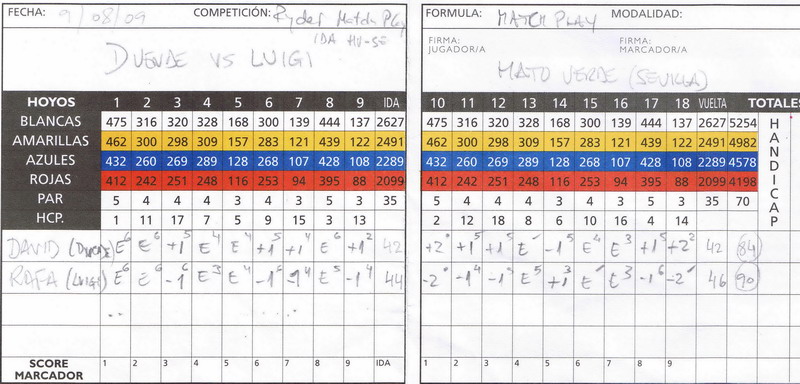 FECHA: 9/08/09 COMPETICIÓN: Ryder Match Play
IDA HU-SE
DUENDE VS LUIGI
HOYOS 1 2 3 4 5 6 7 8 9 IDA
BLANCAS 475 316 320 328 168 300 139 444 137 2627
AMARILLAS 462 300 298 309 157 283 121 439 122 2491
AZULES 432 260 269 289 128 268 107 428 108 2289
ROJAS 412 242 251 248 116 253 94 395 88 2099
PAR 5 4 4 4 3 4 3 5 3 35
HCP. 1 11 17 7 5 9 15 3 13
DAVID (DUENDE) E6 E6 +15 E4 E4 +15 +14 E6 +12 42
RAFA (LUIGI) E6 E6 -16 E3 E4 -16 -14 E5 -14 44
SCORE MARCADOR 1 2 3 4 5 6 7 8 9 IDA
FORMULA: MATCH PLAY MODALIDAD:
FIRMA: JUGADOR/A FIRMA: MARCADOR/A
MATO VERDE (SEVILLA)
10 11 12 13 14 15 16 17 18 VUELTA TOTALES
475 316 320 328 168 300 139 444 137 2627 5254
462 300 298 309 157 283 121 439 122 2491 4982
432 260 269 289 128 268 107 428 108 2289 4578
412 242 251 248 116 253 94 395 88 2099 4198
5 4 4 4 3 4 3 5 3 35 70
2 12 18 8 6 10 16 4 14
HANDICAP
+2 +15 +15 E -15 E4 E3 +15 +22 42 84
-2 -14 -15 E5 +13 E E3 -16 -2 46 90
1 2 3 4 5 6 7 8 9